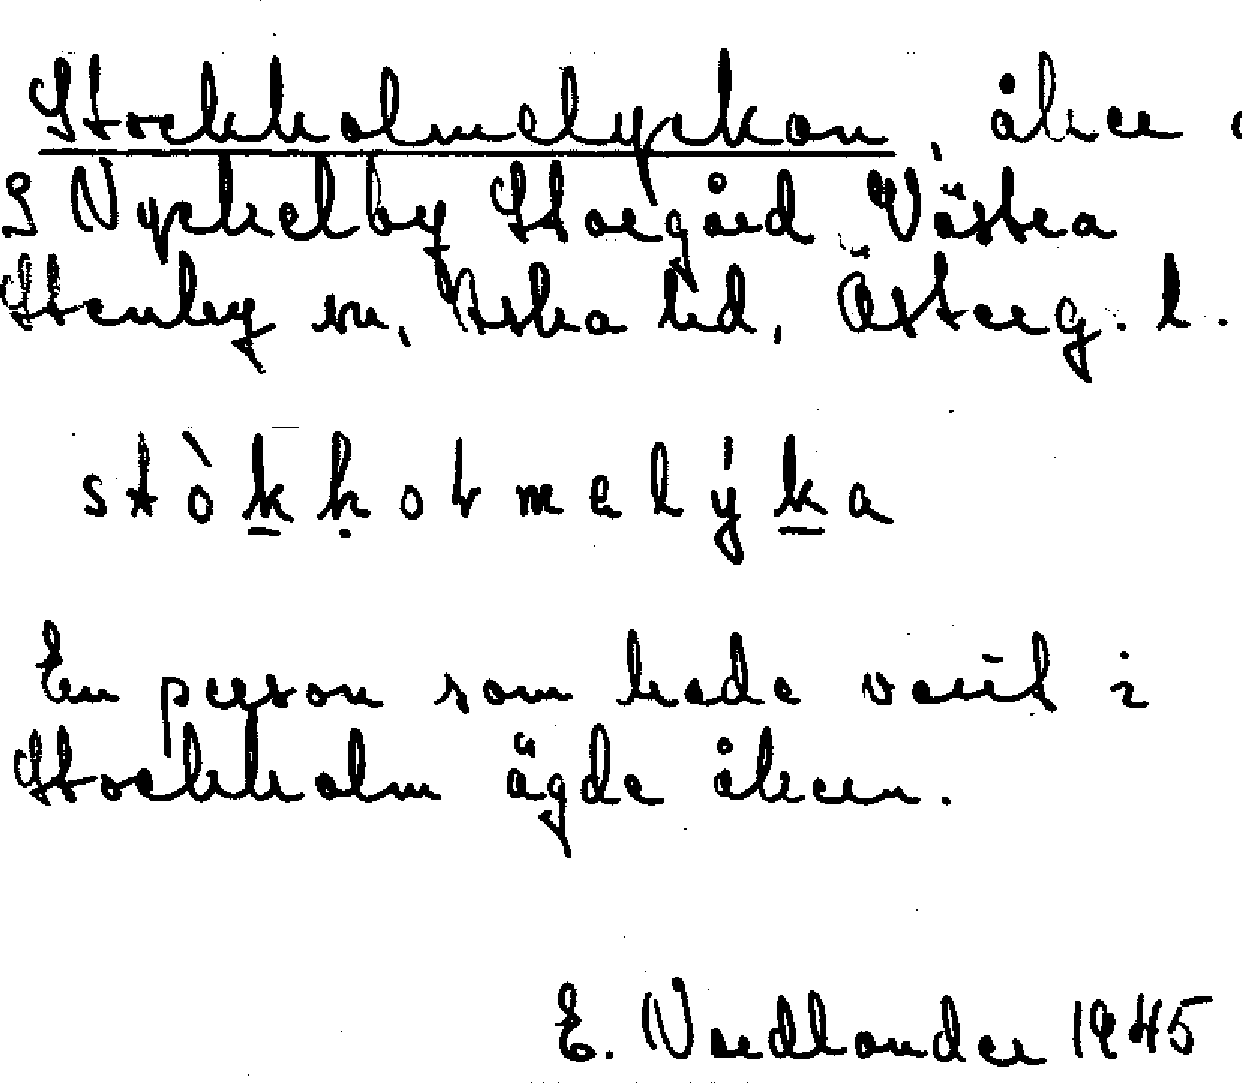 Stockholmslyckan, åker
S Nyckelby Storgård Västra
Stenby sn, Aska hd, Österg. l.
stòkhotmelýka
En person som hade varit i
Stockholm ägde åkern.
E. Nordlander 1945